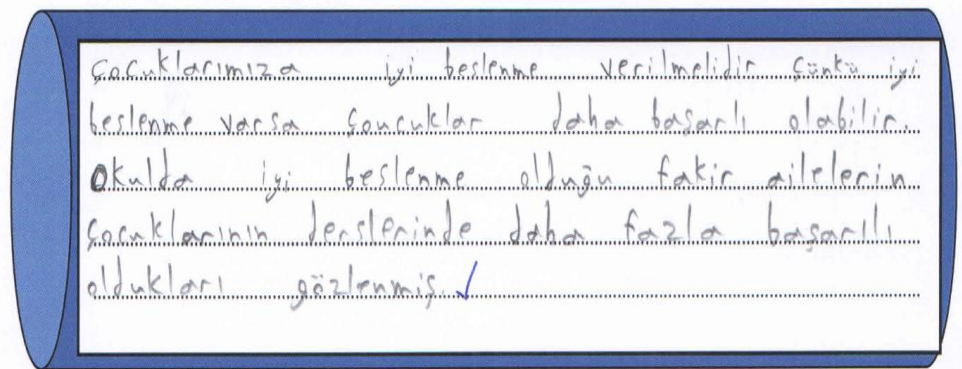 çocuklarımıza iyi beslenme verilmelidir çünkü iyi
beslenme varsa çoucuklar daha başarlı olabilir.
Okulda iyi beslenme olduğu fakir ailelerin
çocuklarının derslerinde daha fazla başarılı
oldukları gözlenmiş.